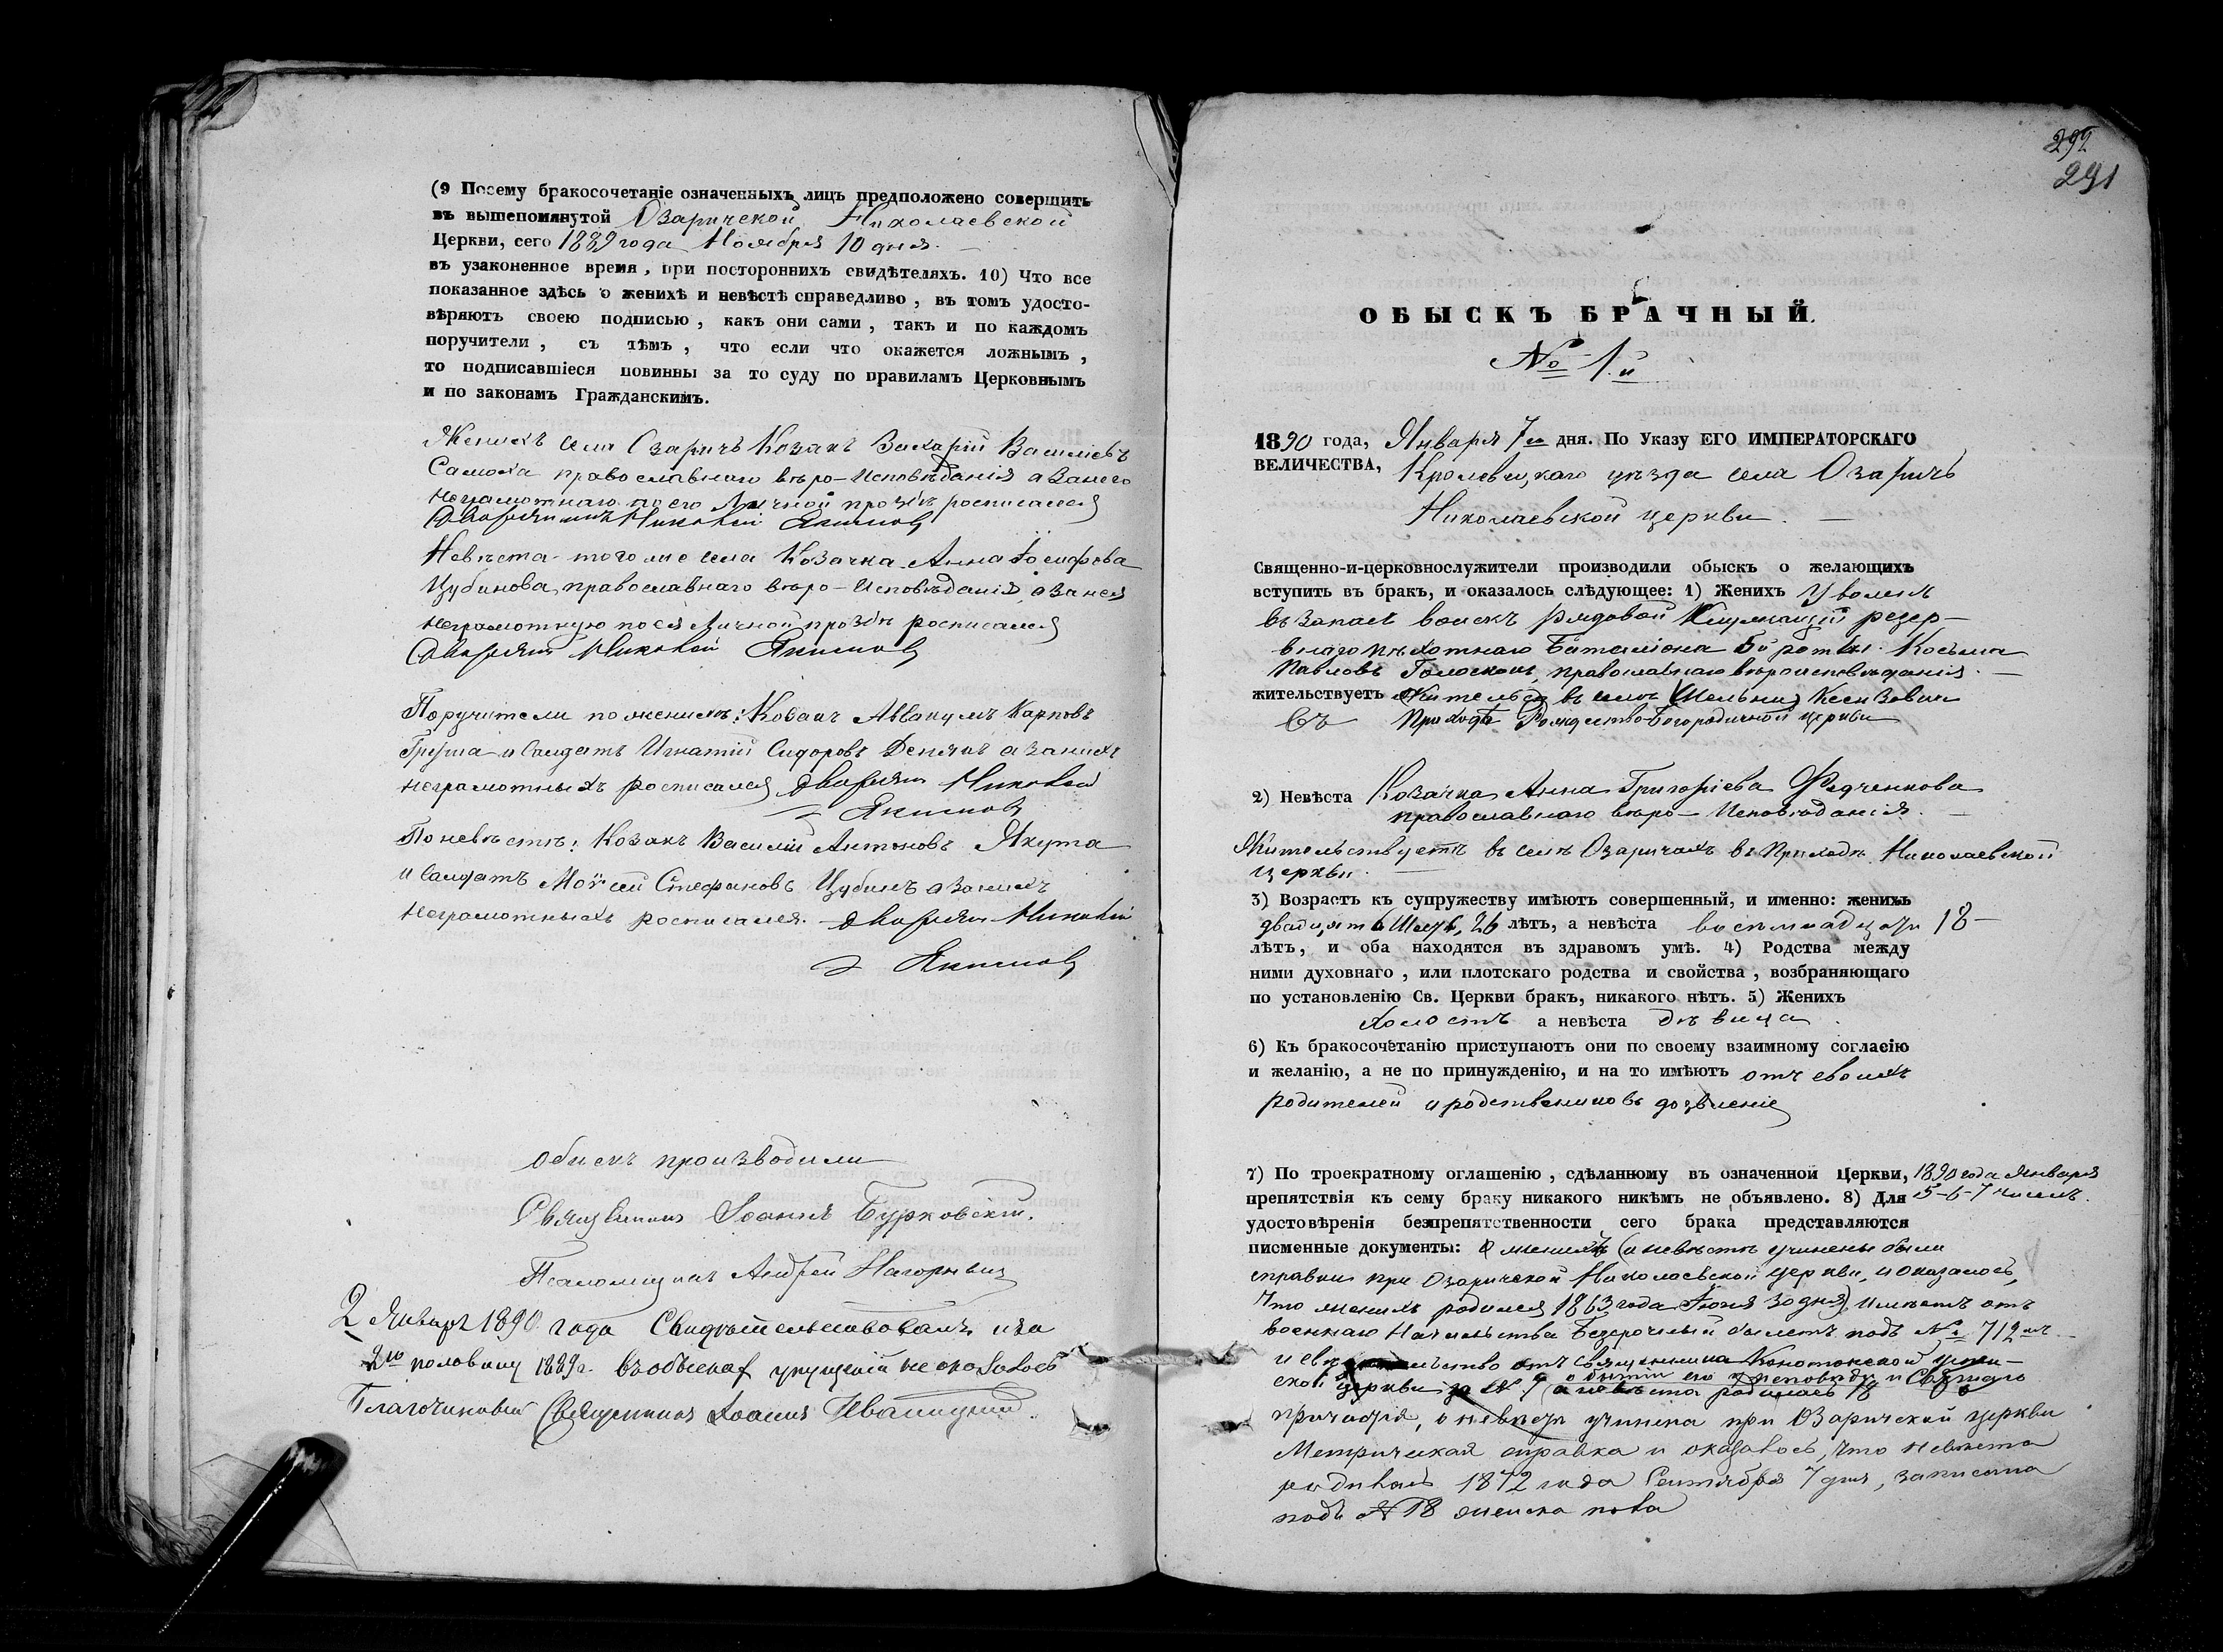 (9 Посему бракосочетаніе означенныхъ лицъ предположено совершить
въ вышепомянутой Озаричской Николаевской
Церкви, сего 1889 года Ноября 10 дня.
въ узаконенное время, при постороннихъ свидѣтеляхъ. 10) Что все
показанное здѣсь о женихѣ и невѣстѣ справедливо, въ томъ удосто-
вѣряютъ своею подписью, какъ они сами, такъ и по каждомъ
поручители, съ тѣмъ, что если что окажется ложнымъ,
то подписавшіеся повинны за то суду по правиламъ Церковнымъ
и по законамъ Гражданскимъ.
Женихъ села Озаричъ Козакъ Захарій Васильевъ
Самоха православнаго вѣро-Исповѣданія а Занего
неграмотнаго по его Личной прозбѣ росписался
Дворянинъ Николай Якимов
Невѣста того же села Козачка Анна Іосифова
Цубинова, православнаго вѣро-Исповѣданія, а За нея
неграмотную по ея Личной прозбѣ росписался
Дворянин Николай Якимов
Поручители по женихѣ: Козакъ Аввакумъ Карповъ
Груша и Салдатъ Игнатій Сидоровъ а За нихъ
неграмотныхъ росписался дворянин Николай
Якимов
По невѣстѣ: Козакъ Василій Антоновъ Якута
и Салдатъ Моѵсей Стефановъ Цубинъ а За нихъ
неграмотныхъ росписался. дворянин Николай
Якимов
Обыскъ производили
Священникъ Іоаннъ Бурковскій.
Псаломщикъ Андрей
2 Января 1890 года Свидѣтельствовалъ и за
2ю половину 1889 г. въ обысках упущеній не оказалось
Благочинный Священникъ Іоаннъ Иваницкій.
292
291
ОБЫСКЪ БРАЧНЫЙ.
№ 1.й
1890 года, Января 7го дня. По Указу ЕГО ИМПЕРАТОРСКАГО
ВЕЛИЧЕСТВА, Кролевецкаго уѣзда села Озаричъ
Николаевской церкви.
Священно-и-церковнослужители производили обыскъ о желающихъ
вступить въ бракъ, и оказалось слѣдующее: 1) Женихъ Уволен.
въ запасъ войскъ рядовой резер-
внаго пѣхотнаго Баталіона 5й роты Косьма
Павловъ православнаго вѣроисповѣданія.
жительствуетъ въ селѣ
въ Приходѣ Рождество-Богородичной церкви
2) Невѣста Козачка Анна Григоріева Федченкова
православнаго вѣро-Исповѣданія.
Жительствуетъ въ селѣ Озаричахъ въ Приходѣ Николаевской
церкви.
3) Возрастъ къ супружеству имѣютъ совершенный, и именно: женихъ
двадцять Шесть, 26 лѣтъ, а невѣста восимнадцать 18-
лѣтъ, и оба находятся въ здравомъ умѣ. 4) Родства между
ними духовнаго, или плотскаго родства и свойства, возбраняющаго
по установленію Св. Церкви бракъ, никакого нѣтъ. 5) Женихъ
холостъ а невѣста дѣвица.
6) Къ бракосочетанію приступаютъ они по своему взаимному согласію
и желанію, а не по принужденію, и на то имѣютъ отъ своихъ
родителей и родствениковъ дозвленіе
7) По троекратному оглашенію, сдѣланному въ означенной Церкви, 1890 года Января
препятствія къ сему браку никакого никѣмъ не объявлено. 8) Для 5-6-7 числъ.
удостовѣренія безпрепятственности сего брака представляются
писменные документы: О женихѣ (и невѣстѣ учинены были
справки при Озаричской Николаевской церкви, и оказалось,
что женихъ родился 1863 года Іюня 30 дня) имѣетъ отъ
военнаго Начальства Безсрочный билетъ подъ № 712мъ
и отъ священника Конотопской
о бытіи его у исповѣди и Святаго
ской церкви за № 9 а невѣста родилась 18
причастія, о невѣстѣ учинена при Озаричской церкви
Метрическая справка и оказалось, что невѣста
родилась 1872 года Сентября 7 дня, записана
подъ № 18 женска пола